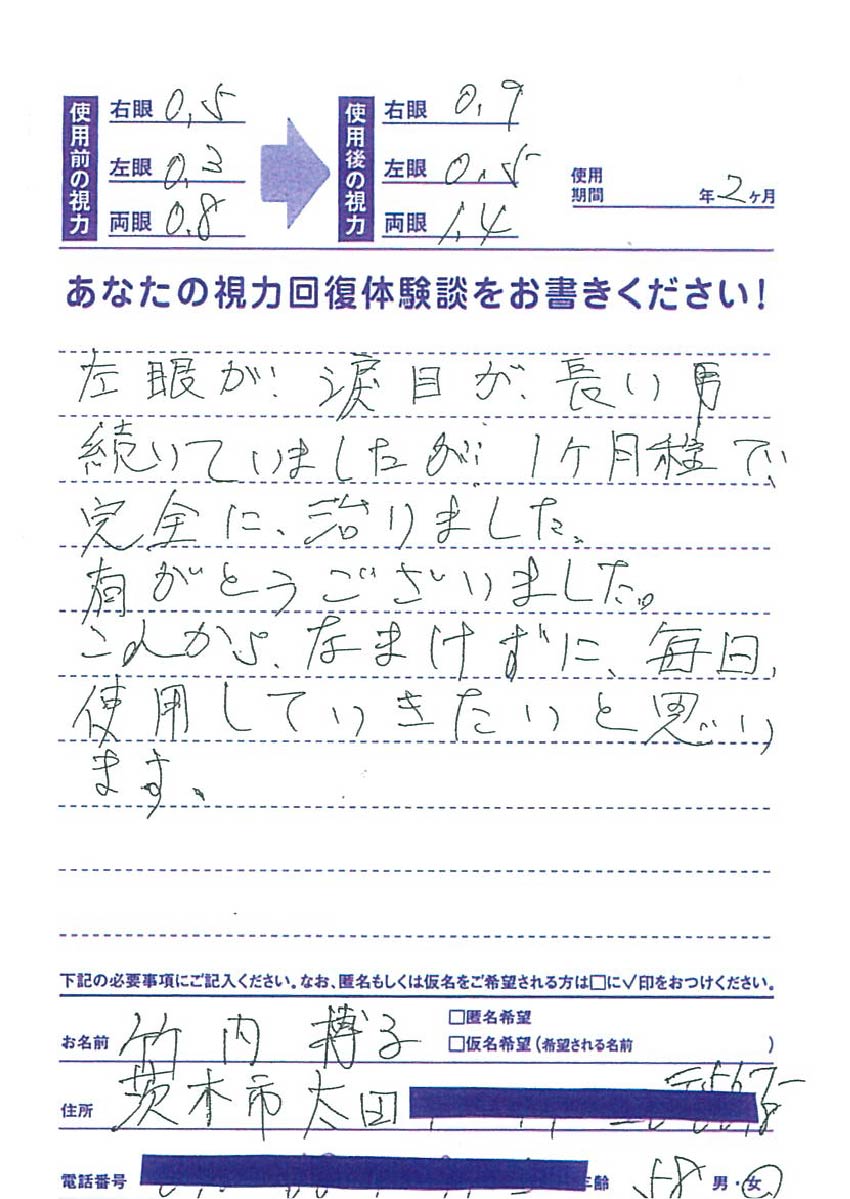 使用前の視力
右眼 0.5
左眼 0.3
両眼 0.8
使用後の視力
右眼 0.9
左眼 0.5
両眼 1.4
使用期間 年2ヶ月
あなたの視力回復体験談をお書きください!
左眼が、涙目が、長い間
続いていましたが、1ケ月程で、
完全に、治りました。
有がとうございました。
これから、なまけずに、毎日、
使用していきたいと思い
ます。
下記の必要事項にご記入ください。なお、匿名もしくは仮名をご希望される方は□に✓印をおつけください。
お名前 竹内 博子
□匿名希望
□仮名希望(希望される名前 )
住所 茨木市太田
〒567-
電話番号
年齢 58 男・女